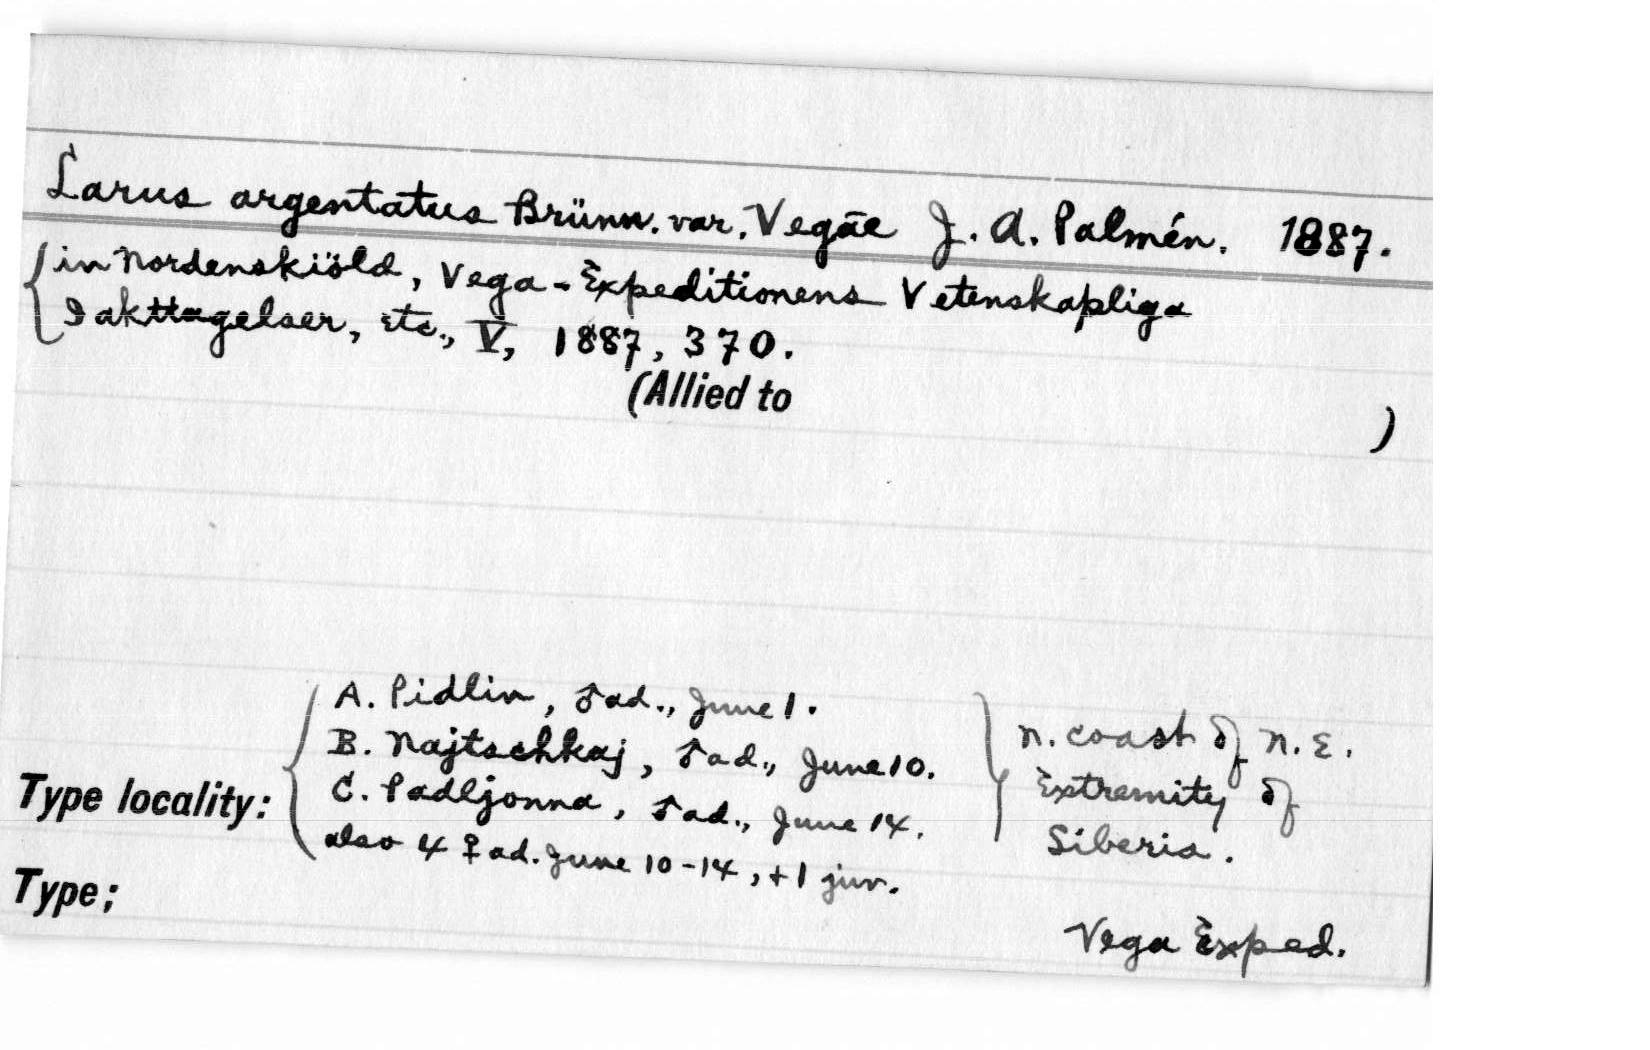 Larus argentatus Brünn. var. Vegae J. A. Palmén. 1887.
in Nordenskiöld, Vega-Expeditionens Vetenskapliga
Iakttagelser, etc., V, 1887, 370.
(Allied to )
A. Pidlin, ♂ ad., June 1.
B. Najtschkaj, ♂ ad., June 10.
C. Padljonna, ♂ ad., June 14.
also 4 ♀ ad. June 10-14, + 1 juv.
N. coast of N.E.
Extremity of
Siberia.
Type locality:
Type;
Vega Exped.